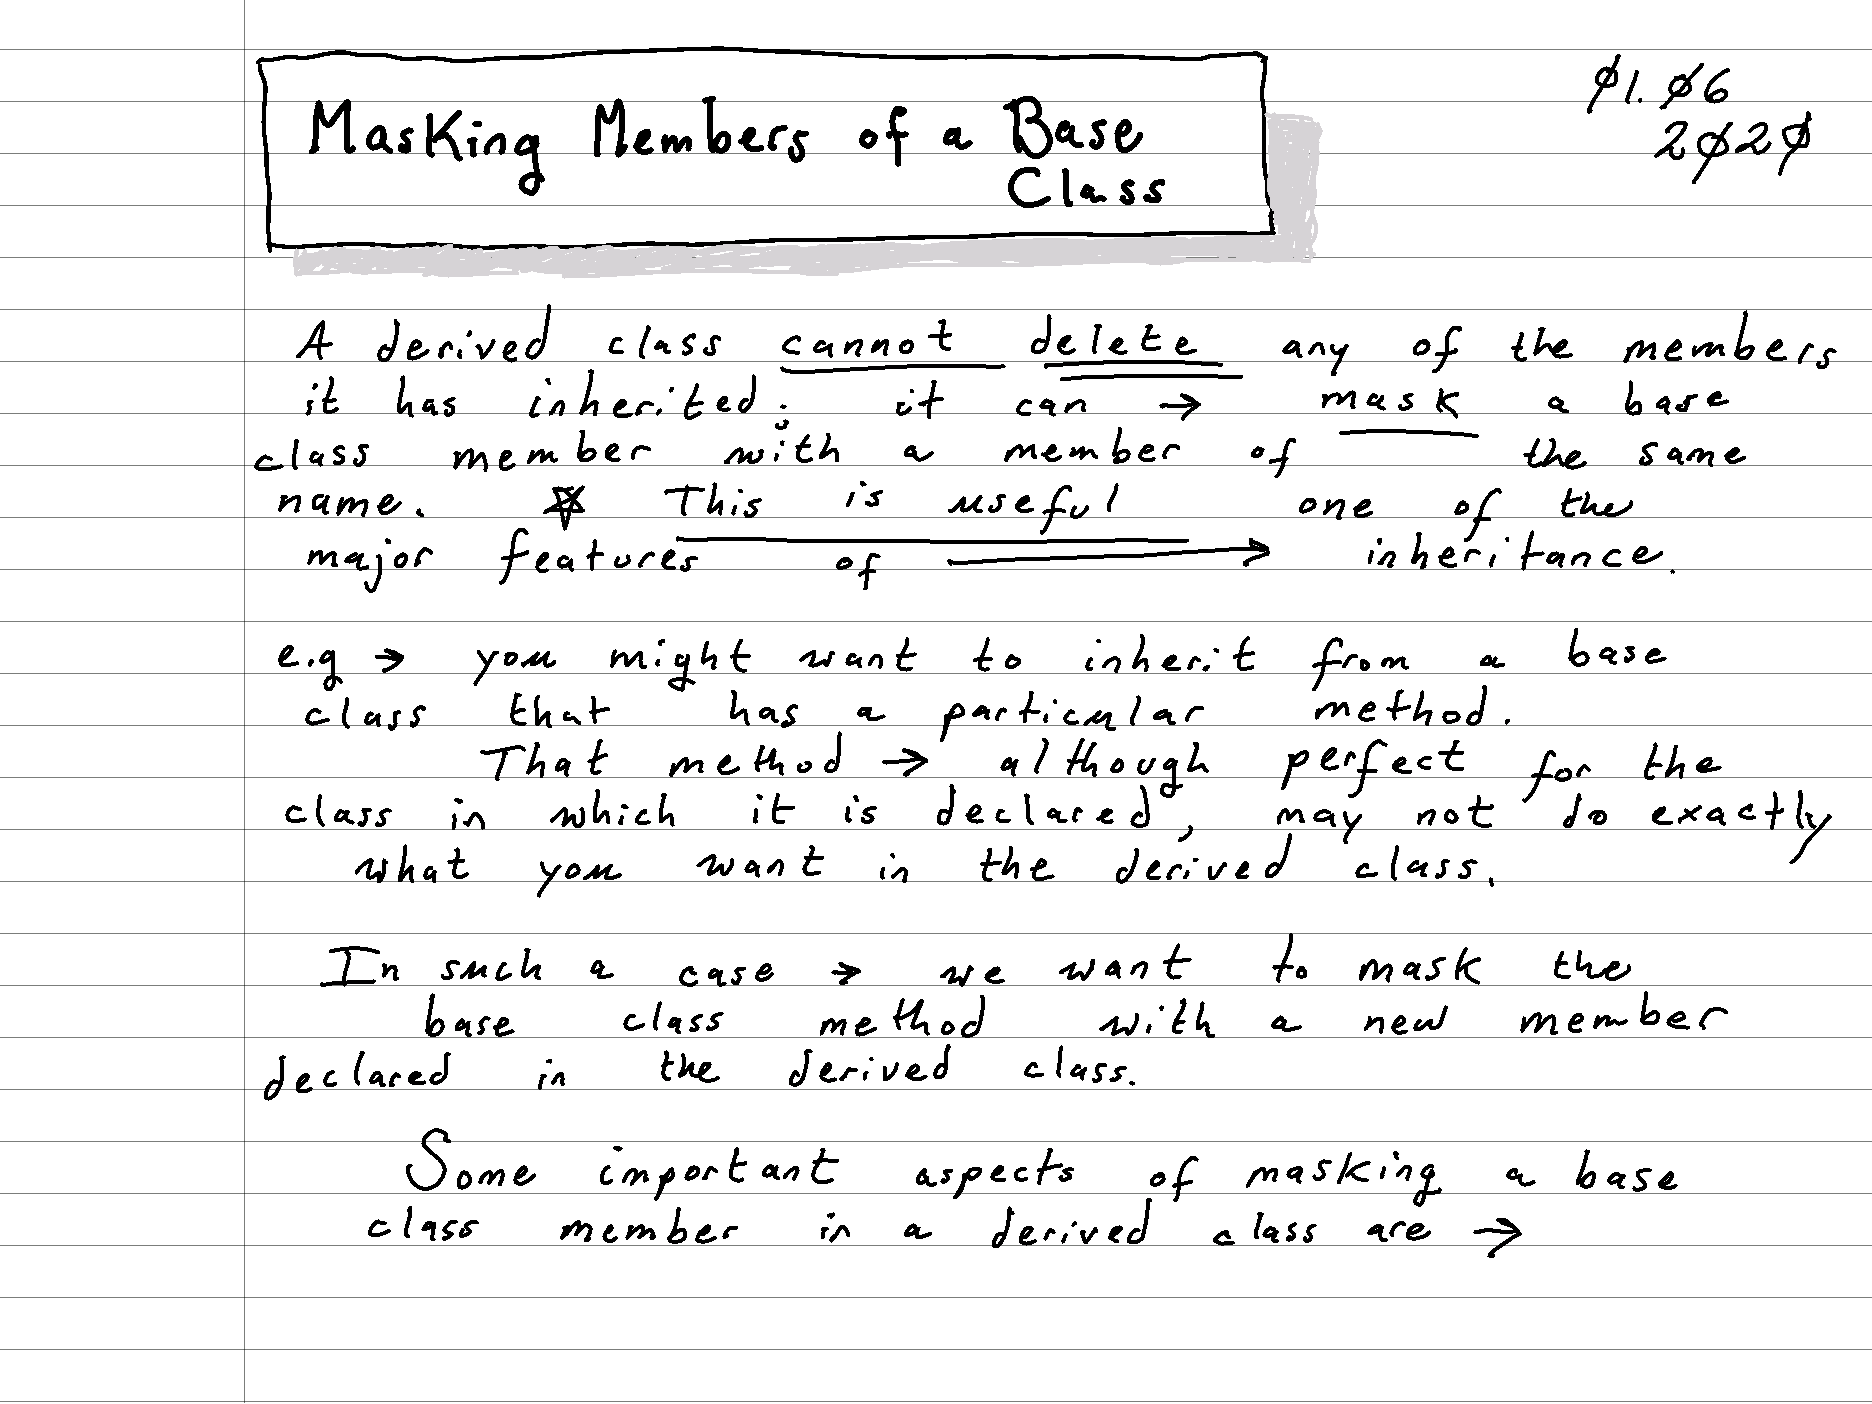 Masking Members of a Base
Class
Ø1. Ø6
2Ø2Ø
A derived class cannot delete any of the members
it has inherited; it can → mask a base
class member with a member of the same
name. ☆ This is useful one of the
major features of → inheritance.
e.g → you might want to inherit from a base
class that has a particular method.
That method → although perfect for the
class in which it is declared, may not do exactly
what you want in the derived class.
In such a case → we want to mask the
base class method with a new member
declared in the derived class.
Some important aspects of masking a base
class member in a derived class are →